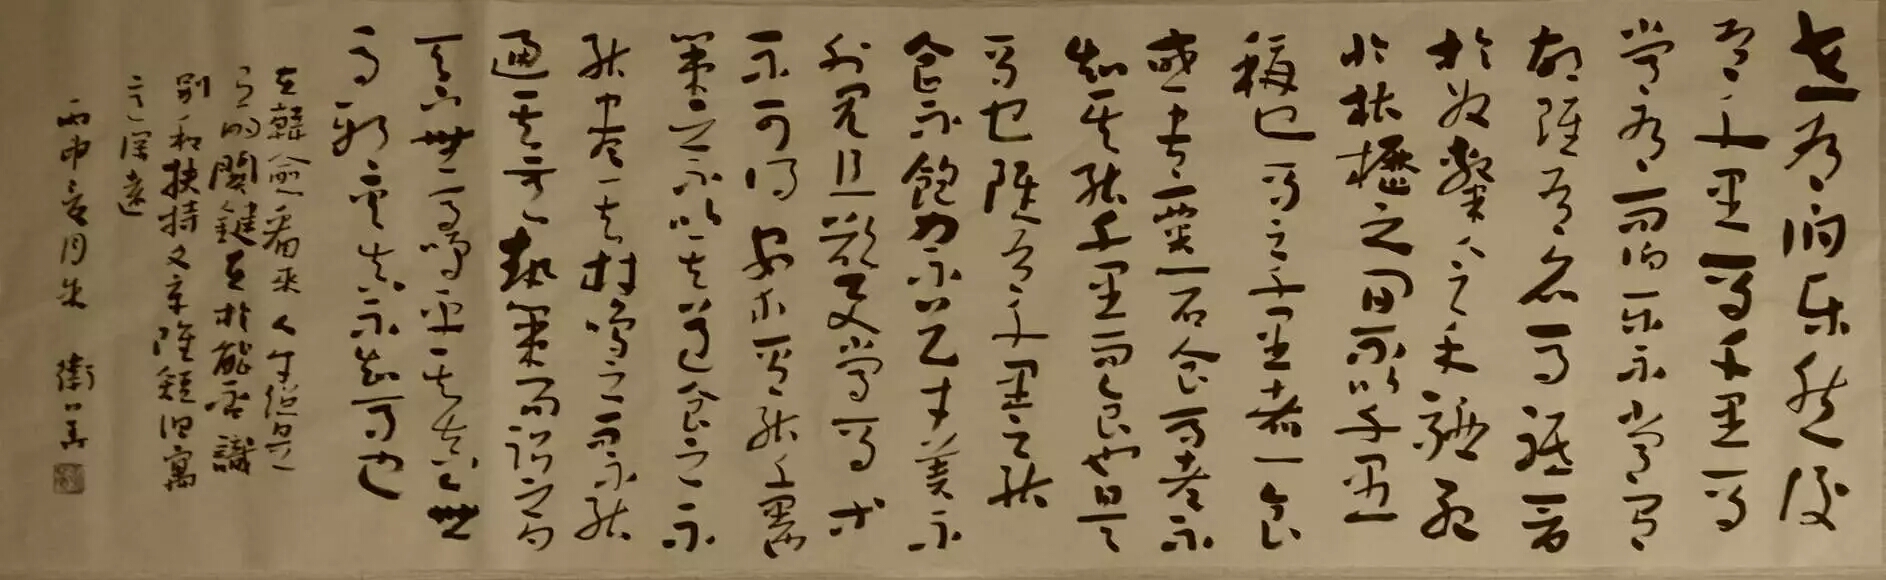 世有伯乐然後
有千里马千里马
常有而伯乐不常有
故雖有名马祗辱
於奴隸人之手骈死
於槽櫪之间不以千里
稱也马之千里者一食
或尽粟一石食马者不
知其能千里而食也是
马也雖有千里之能
食不飽力不足才美不
外见且欲与常马等
不可得安求其能千里也
策之不以其道食之不
能尽其材鸣之而不能
通其意執策而临之曰
天下無马呜呼其真無
马邪其真不知马也
在韓愈看来人才總是
有的関鍵在於能否識
别和扶持文章雖短但寓
意深遠
丙申月朱 衛